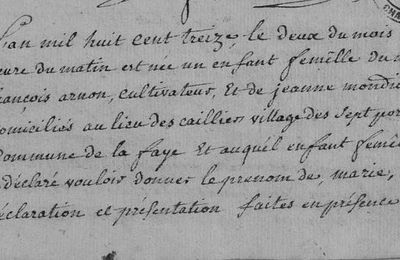 L'an mil huit cent treize, le deux du mois
heure du matin est née un enfant femelle du
françois arnon, cultivateur, Et de jeanne mondi
domiciliés au lieu des caillier village des sept por
commune de la faye Et auquél enfant femél
déclaré vouloir donner le prénom de, marie,
déclaration et présentation faites en présence